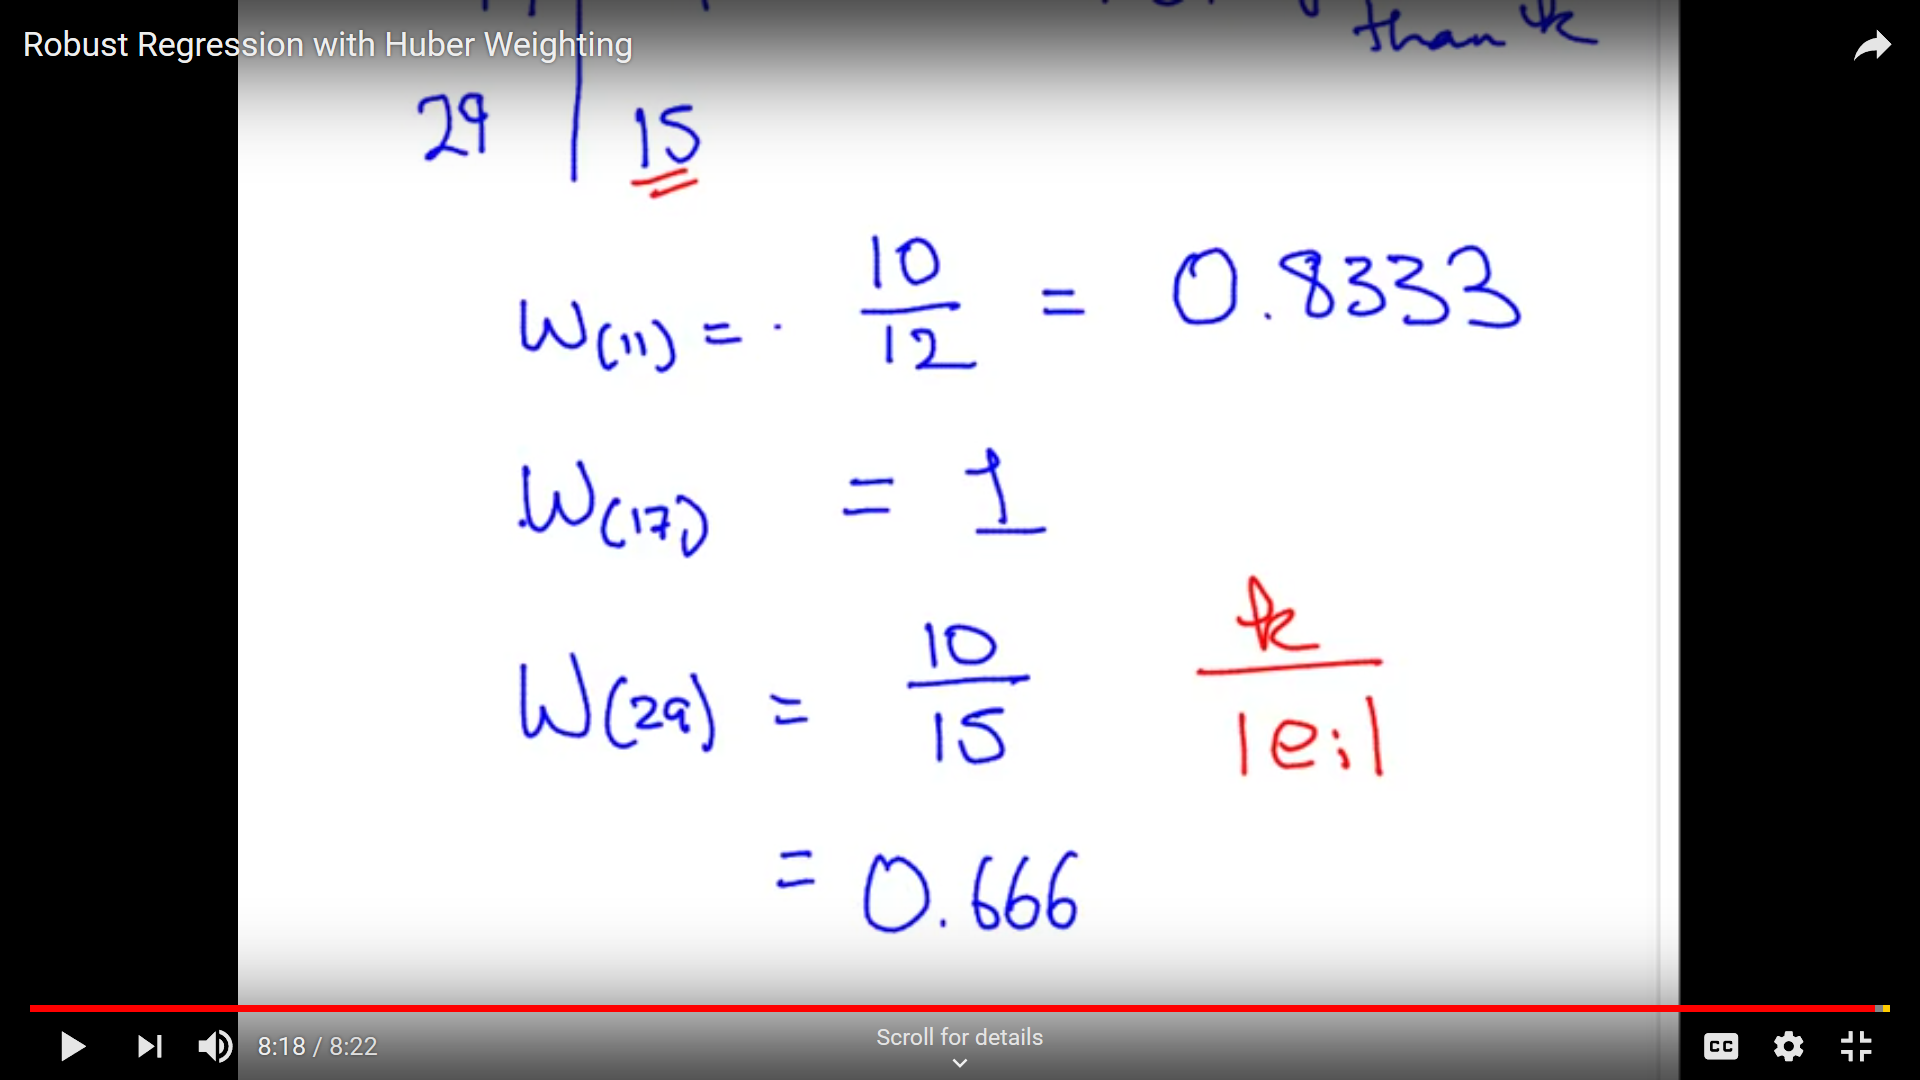 Robust Regression with Huber Weighting
than k
29 | 15
W(11) = · 10/12 = 0.8333
W(17) = 1
W(29) = 10/15 k/|ei|
= 0.666
8:18 / 8:22
Scroll for details
CC